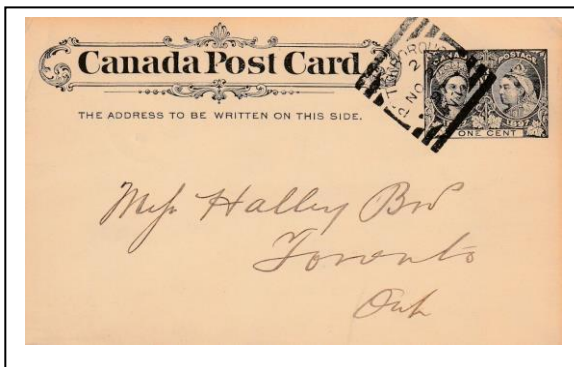 Canada Post Card
THE ADDRESS TO BE WRITTEN ON THIS SIDE.
POSTAGE
1897
ONE CENT
2
NO
Mess Halley Bro
Toronto
Ont